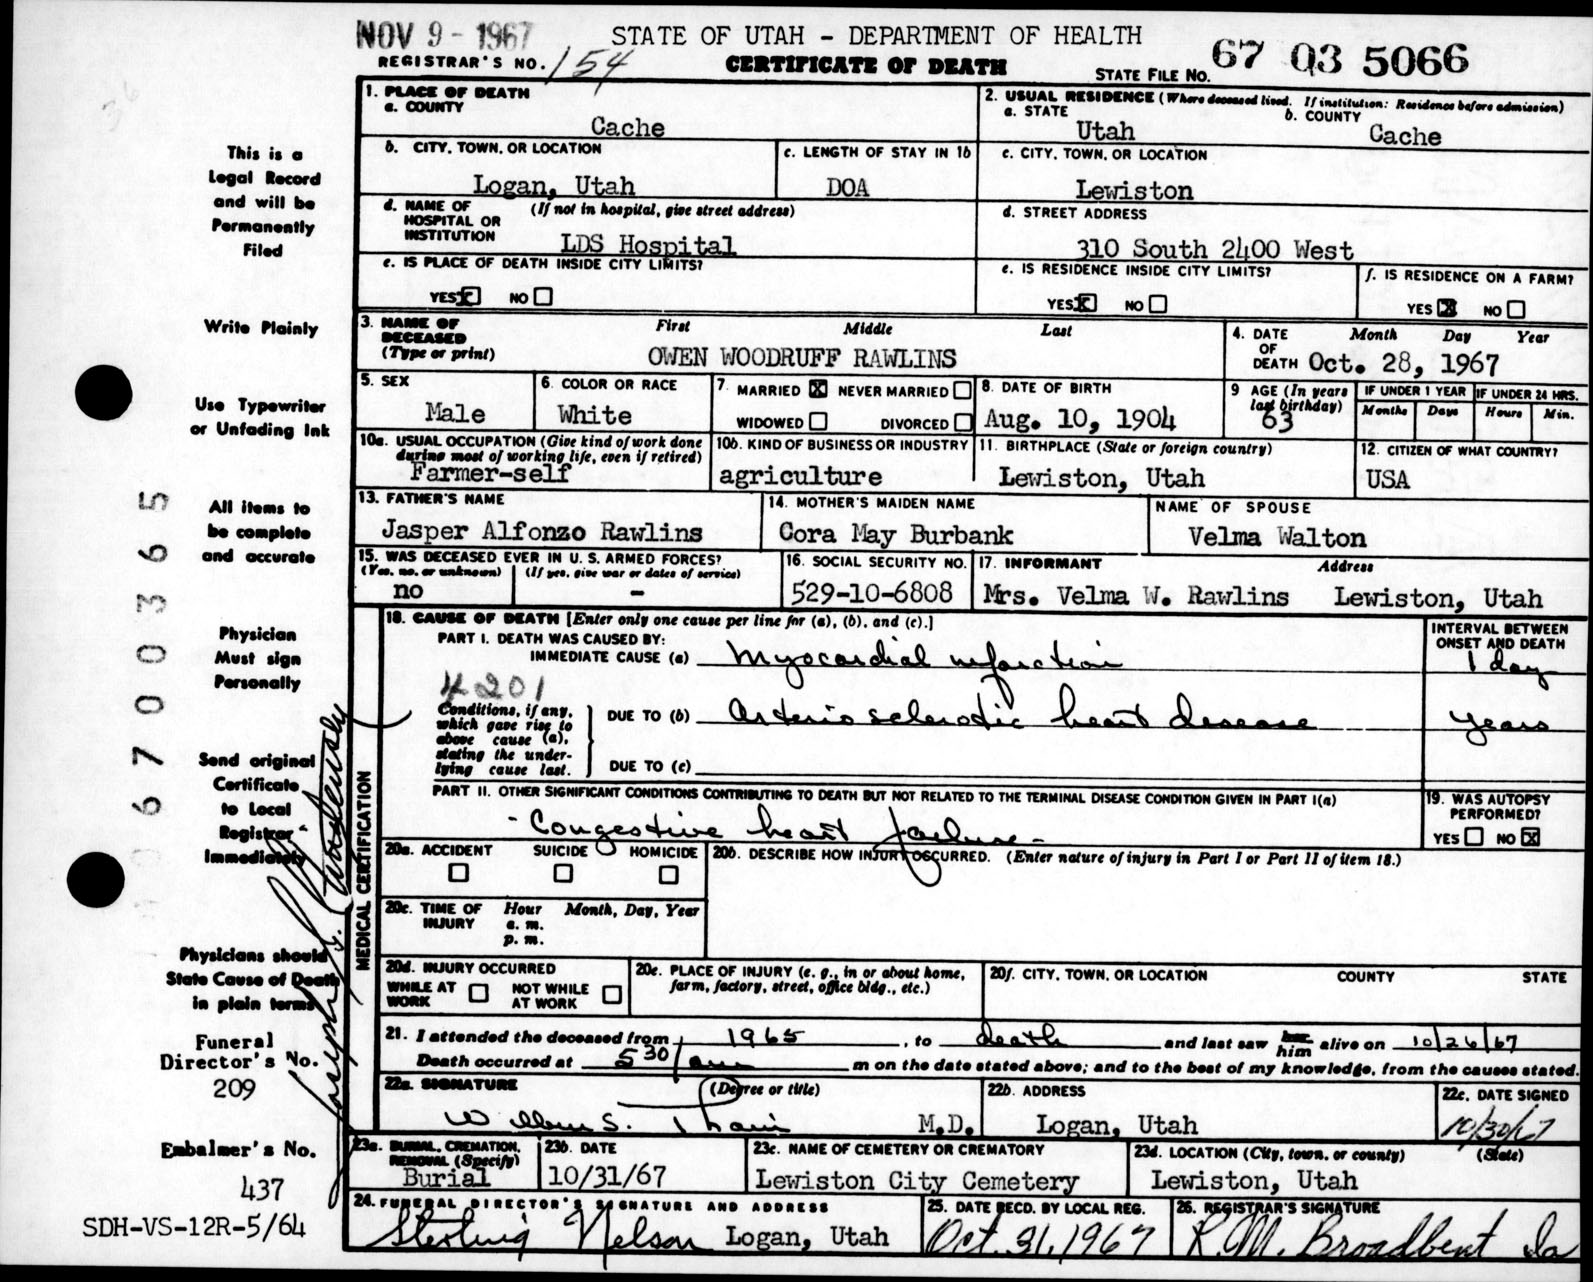 NOV 9 - 1967
STATE OF UTAH - DEPARTMENT OF HEALTH
67 03 5066
REGISTRAR'S NO. 154
CERTIFICATE OF DEATH
STATE FILE NO.
36
1. PLACE OF DEATH
a. COUNTY
Cache
2. USUAL RESIDENCE (Where deceased lived. If institution: Residence before admission)
a. STATE
Utah
b. COUNTY
Cache
b. CITY, TOWN, OR LOCATION
Logan, Utah
c. LENGTH OF STAY IN 1b
DOA
c. CITY, TOWN, OR LOCATION
Lewiston
d. NAME OF HOSPITAL OR INSTITUTION
(If not in hospital, give street address)
LDS Hospital
d. STREET ADDRESS
310 South 2400 West
e. IS PLACE OF DEATH INSIDE CITY LIMITS?
YES x NO
e. IS RESIDENCE INSIDE CITY LIMITS?
YES x NO
f. IS RESIDENCE ON A FARM?
YES x NO
3. NAME OF DECEASED (Type or print)
First Middle Last
OWEN WOODRUFF RAWLINS
4. DATE OF DEATH
Month Day Year
Oct. 28, 1967
5. SEX
Male
6. COLOR OR RACE
White
7. MARRIED x NEVER MARRIED
WIDOWED DIVORCED
8. DATE OF BIRTH
Aug. 10, 1904
9 AGE (In years last birthday)
63
IF UNDER 1 YEAR
Months Days
IF UNDER 24 HRS.
Hours Min.
10a. USUAL OCCUPATION (Give kind of work done during most of working life, even if retired)
Farmer-self
10b. KIND OF BUSINESS OR INDUSTRY
agriculture
11. BIRTHPLACE (State or foreign country)
Lewiston, Utah
12. CITIZEN OF WHAT COUNTRY?
USA
13. FATHER'S NAME
Jasper Alfonzo Rawlins
14. MOTHER'S MAIDEN NAME
Cora May Burbank
NAME OF SPOUSE
Velma Walton
15. WAS DECEASED EVER IN U. S. ARMED FORCES?
(Yes, no, or unknown) (If yes, give war or dates of service)
no -
16. SOCIAL SECURITY NO.
529-10-6808
17. INFORMANT Address
Mrs. Velma W. Rawlins Lewiston, Utah
MEDICAL CERTIFICATION
18. CAUSE OF DEATH [Enter only one cause per line for (a), (b), and (c).]
PART I. DEATH WAS CAUSED BY:
IMMEDIATE CAUSE (a) Myocardial infarction
INTERVAL BETWEEN ONSET AND DEATH
1 day
4201
Conditions, if any, which gave rise to above cause (a), stating the underlying cause last.
DUE TO (b) Arteriosclerotic heart disease
years
DUE TO (c)
PART II. OTHER SIGNIFICANT CONDITIONS CONTRIBUTING TO DEATH BUT NOT RELATED TO THE TERMINAL DISEASE CONDITION GIVEN IN PART I(a)
- Congestive heart failure -
19. WAS AUTOPSY PERFORMED?
YES NO x
20a. ACCIDENT SUICIDE HOMICIDE
20b. DESCRIBE HOW INJURY OCCURRED. (Enter nature of injury in Part I or Part II of item 18.)
20c. TIME OF INJURY
Hour Month, Day, Year
a. m.
p. m.
20d. INJURY OCCURRED
WHILE AT WORK NOT WHILE AT WORK
20e. PLACE OF INJURY (e. g., in or about home, farm, factory, street, office bldg., etc.)
20f. CITY, TOWN, OR LOCATION COUNTY STATE
21. I attended the deceased from 1965, to death and last saw her him alive on 10/26/67
Death occurred at 5 30 am m on the date stated above; and to the best of my knowledge, from the causes stated.
22a. SIGNATURE (Degree or title)
M.D.
22b. ADDRESS
Logan, Utah
22c. DATE SIGNED
10/30/67
23a. BURIAL, CREMATION, REMOVAL (Specify)
Burial
23b. DATE
10/31/67
23c. NAME OF CEMETERY OR CREMATORY
Lewiston City Cemetery
23d. LOCATION (City, town, or county) (State)
Lewiston, Utah
24. FUNERAL DIRECTOR'S SIGNATURE AND ADDRESS
Sterling Nelson Logan, Utah
25. DATE RECD. BY LOCAL REG.
Oct. 31, 1967
26. REGISTRAR'S SIGNATURE
R. M. Broadbent
This is a
Legal Record
and will be
Permanently
Filed
Write Plainly
Use Typewriter
or Unfading Ink
All items to
be complete
and accurate
Physician
Must sign
Personally
Send original
Certificate
to Local
Registrar
Immediately
Physicians should
State Cause of Death
in plain terms
Funeral
Director's No.
209
Embalmer's No.
437
SDH-VS-12R-5/64
6700365